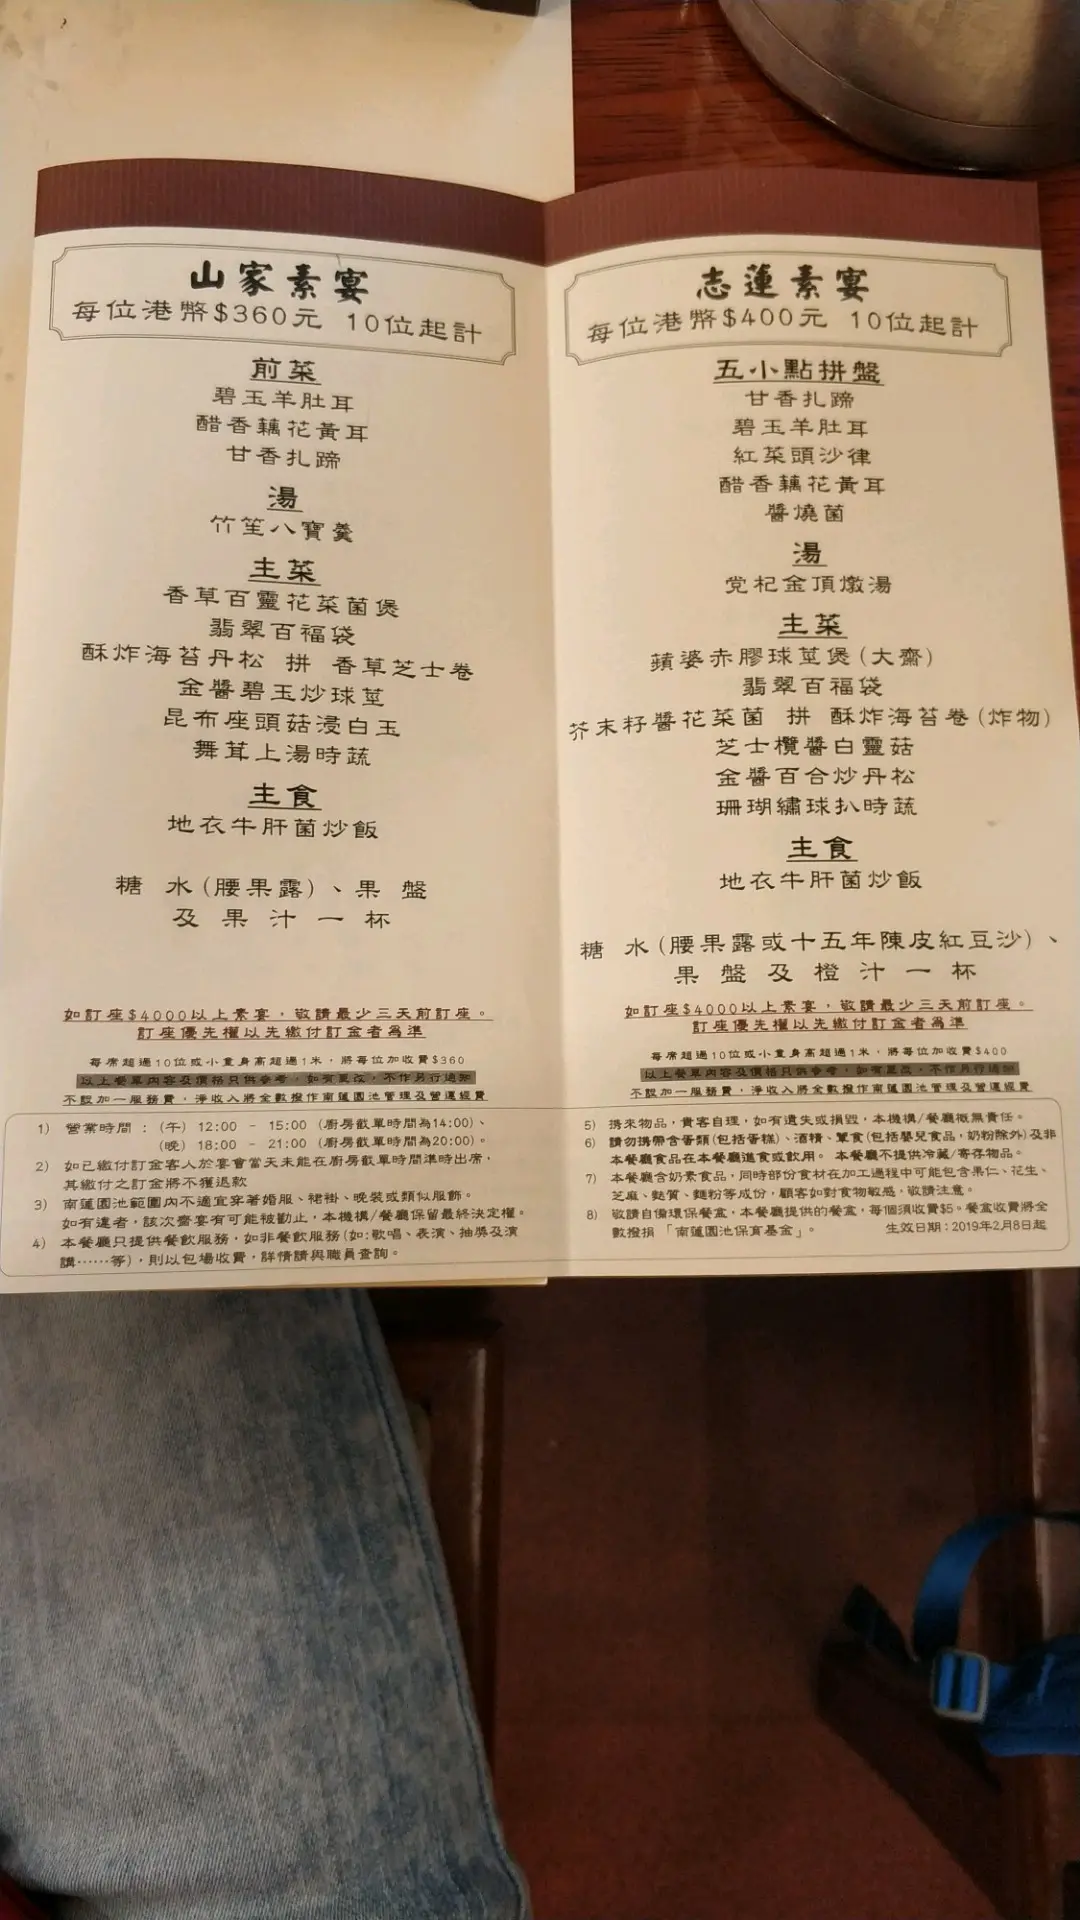 山家素宴
每位港幣$360元 10位起計
前菜
碧玉羊肚耳
醋香藕花黃耳
甘香扎蹄
湯
竹笙八寶羹
主菜
香草百靈花菜菌煲
翡翠百福袋
酥炸海苔丹松 拼 香草芝士卷
金醬碧玉炒球莖
昆布座頭菇浸白玉
舞茸上湯時蔬
主食
地衣牛肝菌炒飯
糖 水(腰果露)、果 盤
及 果 汁 一 杯
如訂座$4000以上素宴，敬請最少三天前訂座。
訂座優先權以先繳付訂金者為準
每席超過10位或小童身高超過1米，將每位加收費$360
以上餐單內容及價格只供參考，如有更改，不作另行通知
不設加一服務費，淨收入將全數撥作南蓮園池管理及營運經費
1) 營業時間：(午) 12:00 - 15:00 (廚房截單時間為14:00)、
(晚) 18:00 - 21:00 (廚房截單時間為20:00)。
2) 如已繳付訂金客人於宴會當天未能在廚房截單時間準時出席，
其繳付之訂金將不獲退款
3) 南蓮園池範圍內不適宜穿著婚服、裙褂、晚裝或類似服飾。
如有違者，該次齋宴有可能被勸止，本機構/餐廳保留最終決定權。
4) 本餐廳只提供餐飲服務，如非餐飲服務(如:歌唱、表演、抽獎及演
講……等)，則以包場收費，詳情請與職員查詢。
志蓮素宴
每位港幣$400元 10位起計
五小點拼盤
甘香扎蹄
碧玉羊肚耳
紅菜頭沙律
醋香藕花黃耳
醬燒菌
湯
党杞金頂燉湯
主菜
蘋婆赤膠球莖煲(大齋)
翡翠百福袋
芥末籽醬花菜菌 拼 酥炸海苔卷(炸物)
芝士欖醬白靈菇
金醬百合炒丹松
珊瑚繡球扒時蔬
主食
地衣牛肝菌炒飯
糖 水(腰果露或十五年陳皮紅豆沙)、
果 盤 及 橙 汁 一 杯
如訂座$4000以上素宴，敬請最少三天前訂座。
訂座優先權以先繳付訂金者為準
每席超過10位或小童身高超過1米，將每位加收費$400
以上餐單內容及價格只供參考，如有更改，不作另行通知
不設加一服務費，淨收入將全數撥作南蓮園池管理及營運經費
5) 携來物品，貴客自理，如有遺失或損毀，本機構/餐廳概無責任。
6) 請勿携帶含蛋類(包括蛋糕)、酒精、葷食(包括嬰兒食品，奶粉除外)及非
本餐廳食品在本餐廳進食或飲用。 本餐廳不提供冷藏/寄存物品。
7) 本餐廳含奶素食品，同時部份食材在加工過程中可能包含果仁、花生、
芝麻、麩質、麵粉等成份，顧客如對食物敏感，敬請注意。
8) 敬請自備環保餐盒，本餐廳提供的餐盒，每個須收費$5。餐盒收費將全
數撥捐「南蓮園池保育基金」。 生效日期：2019年2月8日起